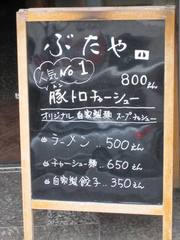 ぶたや
人気No1
800えん
豚トロチャーシュー
オリジナル自家製麺スープチャーシュー
ラーメン‥500えん
チャーシュー麺‥650えん
自家製餃子‥350えん